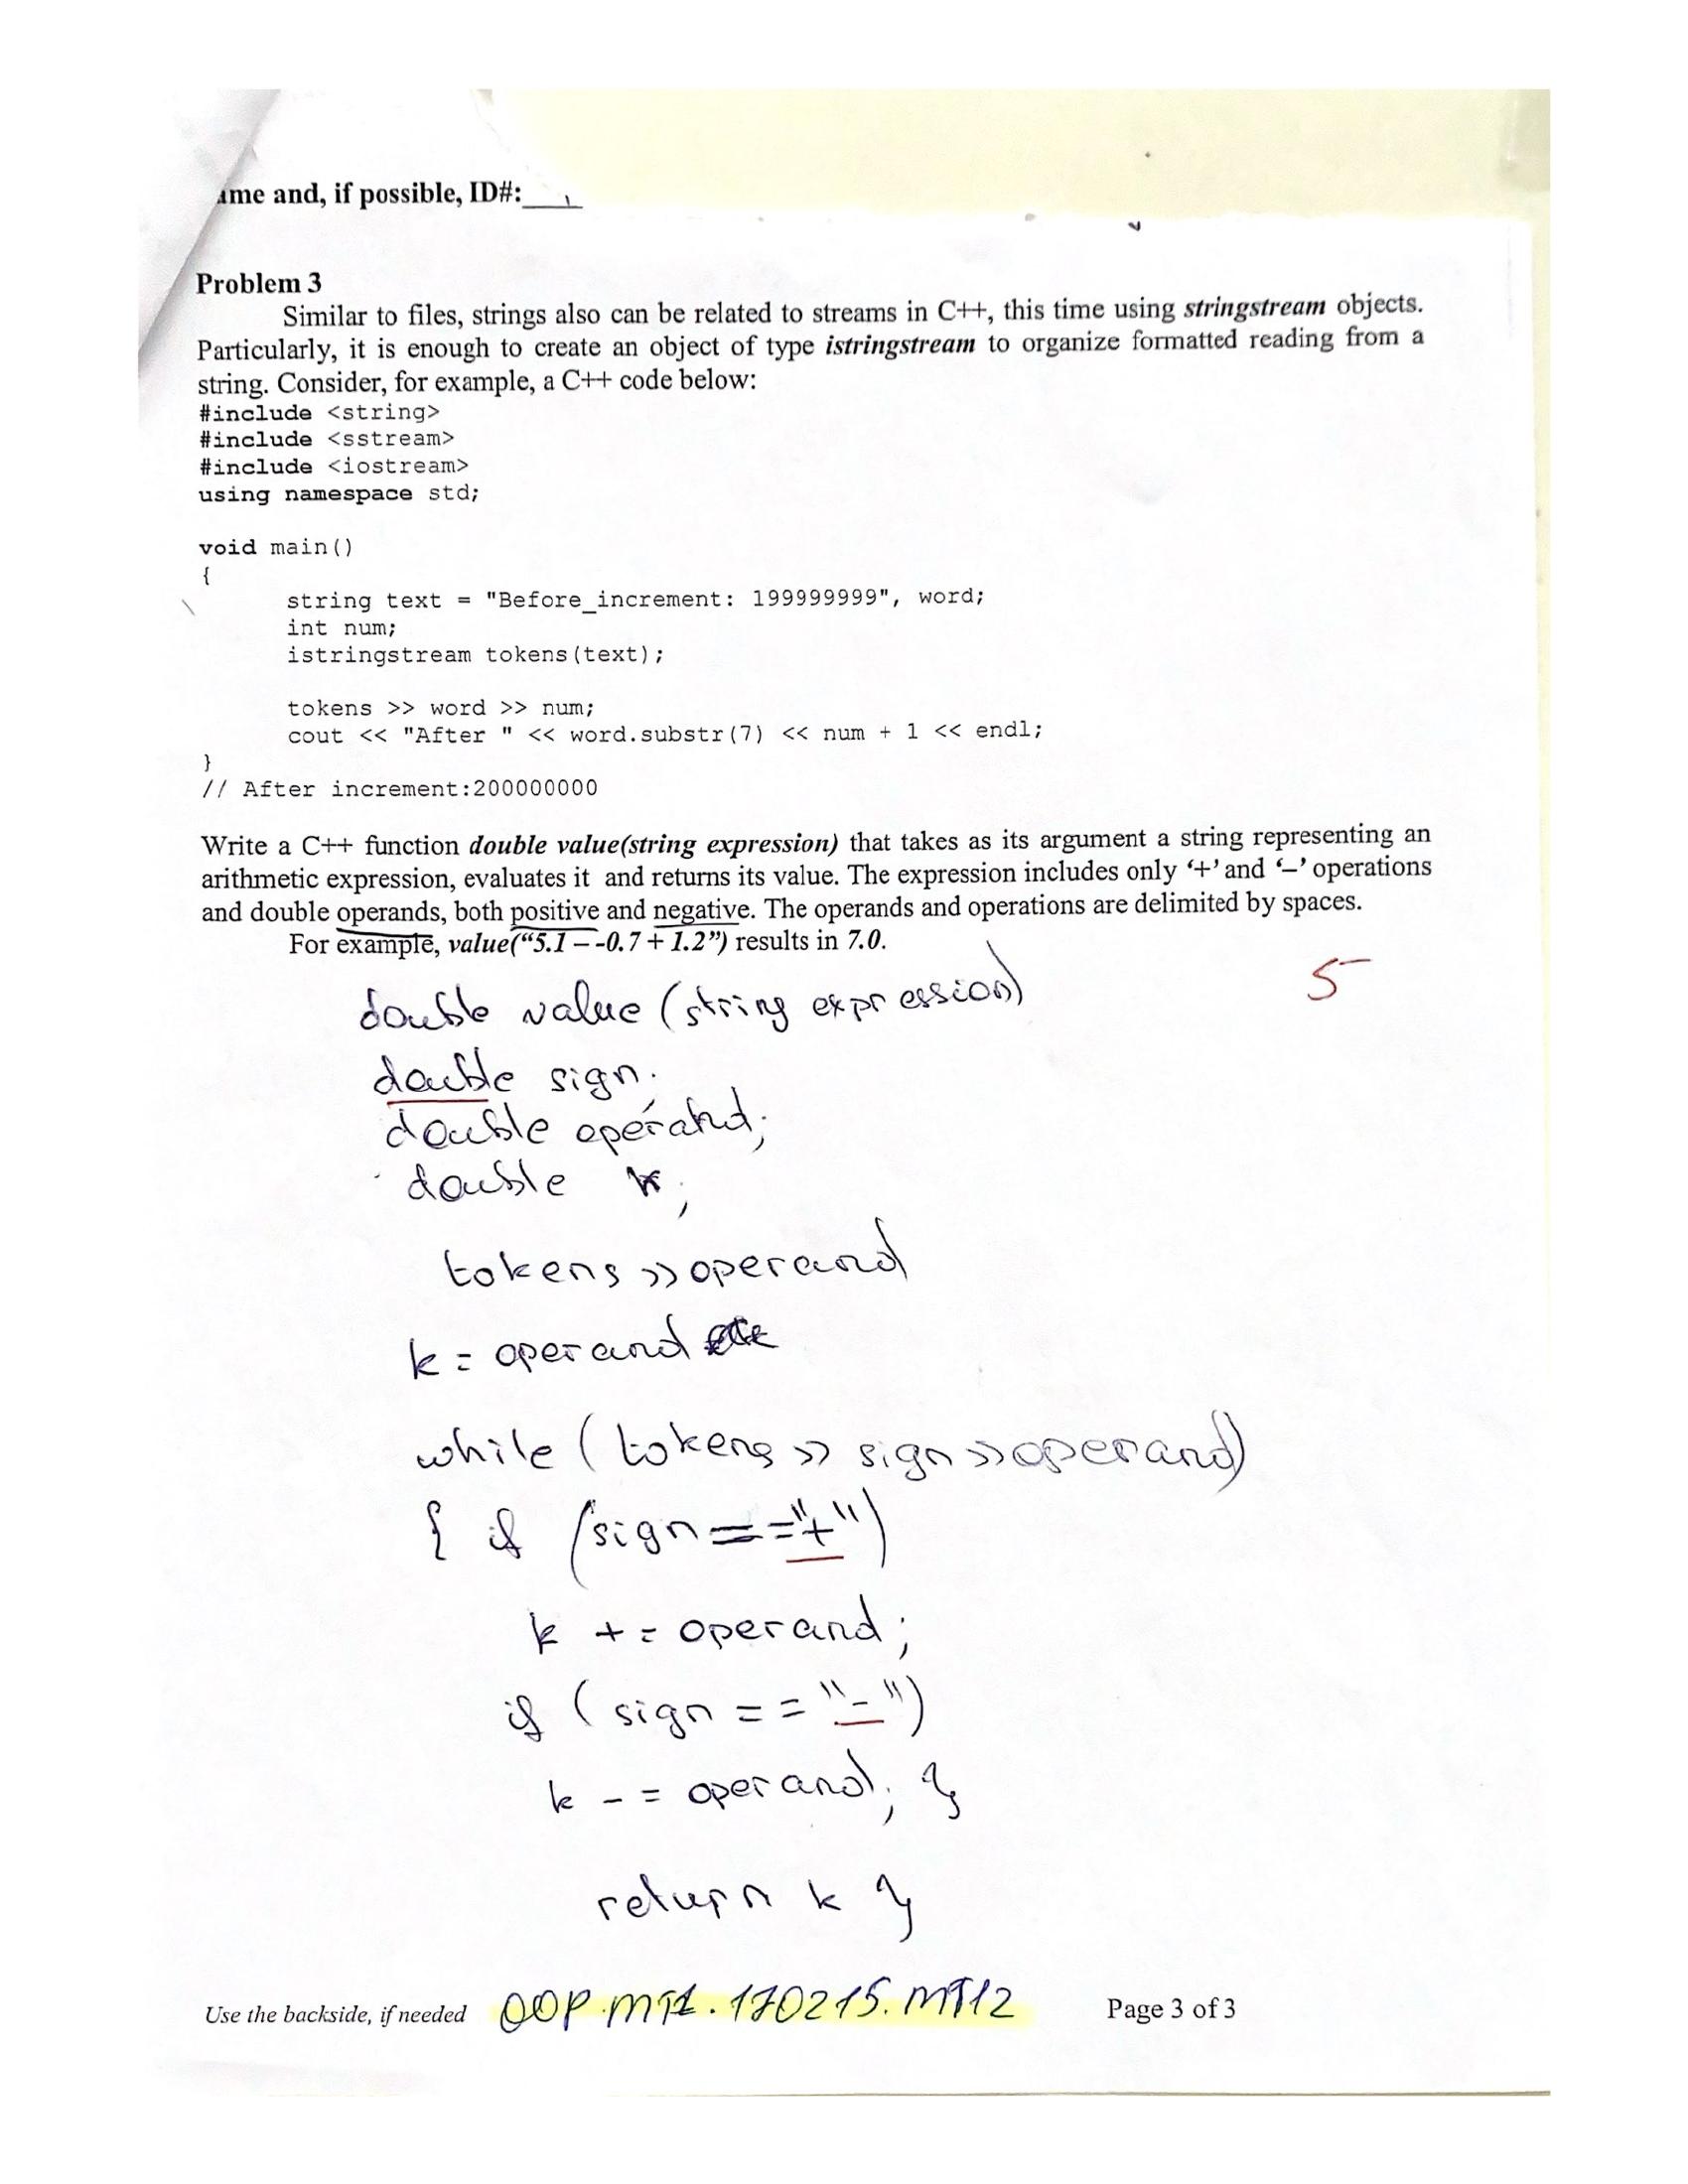 ame and, if possible, ID#:
Problem 3
Similar to files, strings also can be related to streams in C++, this time using stringstream objects.
Particularly, it is enough to create an object of type istringstream to organize formatted reading from a
string. Consider, for example, a C++ code below:
#include <string>
#include <sstream>
#include <iostream>
using namespace std;
void main()
{
string text = "Before_increment: 199999999", word;
int num;
istringstream tokens(text);
tokens >> word >> num;
cout << "After " << word.substr(7) << num + 1 << endl;
}
// After increment:200000000
Write a C++ function double value(string expression) that takes as its argument a string representing an
arithmetic expression, evaluates it and returns its value. The expression includes only ‘+’ and ‘–’ operations
and double operands, both positive and negative. The operands and operations are delimited by spaces.
For example, value(“5.1 – -0.7 + 1.2”) results in 7.0.
5-
double value (string expression)
double sign;
double operand;
double k;
tokens >> operand
k = operand
while (tokens >> sign >> operand)
{ if (sign == "+")
k += operand;
if (sign == "-")
k -= operand; }
return k }
Use the backside, if needed OOP.MT1.170215.MT12 Page 3 of 3